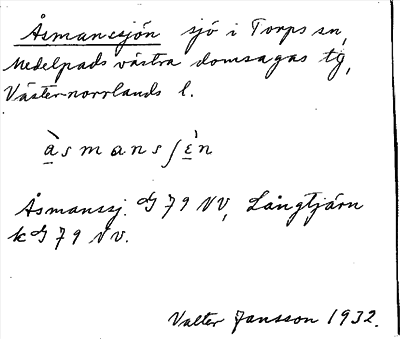 Åsmanssjön sjö i Torps sn,
Medelpads västra domsagas tg,
Västernorrlands l.
å̀smansʃɛ̀n
Åsmanssj. G 79 NV, Långtjärn
k G 79 NV.
Valter Jansson 1932.